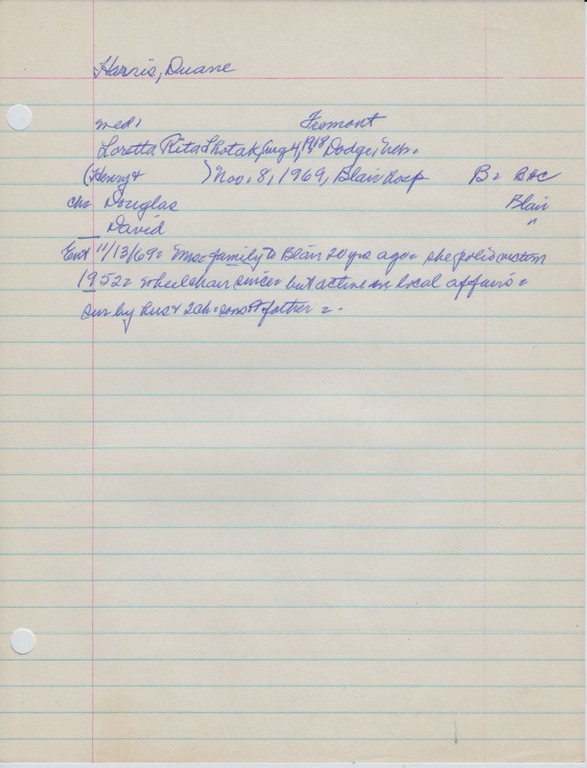 Harris, Duane
med: Fremont
Loretta Rita Shotak, Aug 4, 1918 Dodge, Neb.
(Henry & ) Nov. 8, 1969, Blair Hosp B: BHC
ch: Douglas Blair
David
Ent 11/13/69: family to Blair 20 yrs ago: she polio victim
1952: wheelchair since: but active in local affairs:
sur by hus & 2 ch: sons & father :.